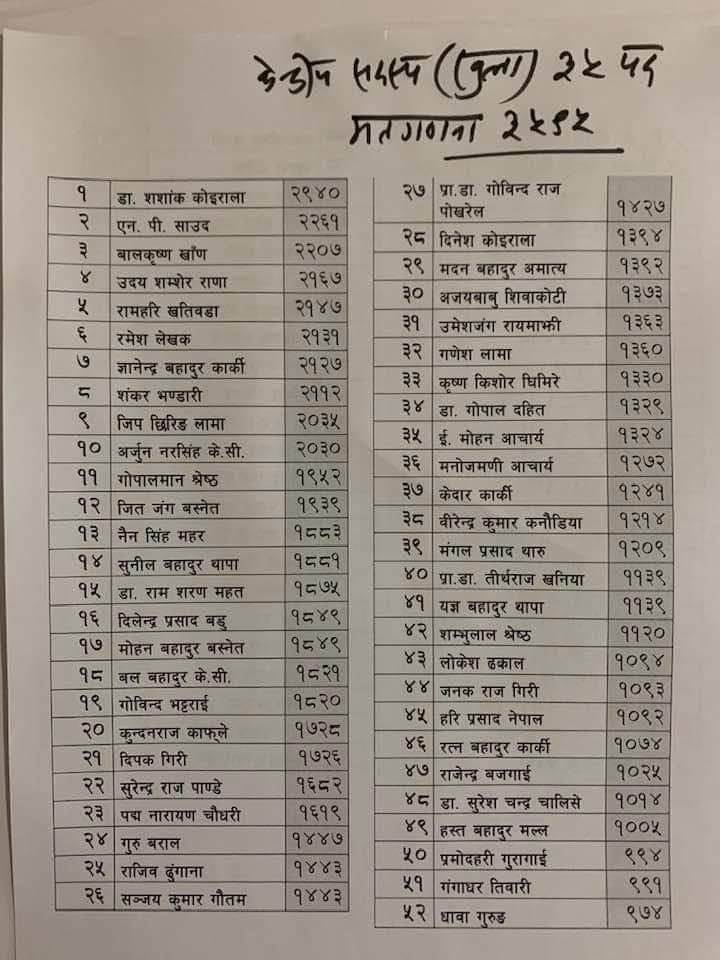 केन्द्रीय सदस्य (खुला) २५ पद
मतगणना २५९५
१ डा. शशांक कोइराला २९४०
२ एन. पी. साउद २२६१
३ बालकृष्ण खाँण २२०७
४ उदय शम्शेर राणा २१६७
५ रामहरि खतिवडा २१४७
६ रमेश लेखक २१३१
७ ज्ञानेन्द्र बहादुर कार्की २१२७
८ शंकर भण्डारी २११२
९ जिप छिरिङ लामा २०३५
१० अर्जुन नरसिंह के.सी. २०३०
११ गोपालमान श्रेष्ठ १९५२
१२ जित जंग बस्नेत १९३९
१३ नैन सिंह महर १८८३
१४ सुनील बहादुर थापा १८८१
१५ डा. राम शरण महत १८७५
१६ दिलेन्द्र प्रसाद बडु १८४९
१७ मोहन बहादुर बस्नेत १८४९
१८ बल बहादुर के.सी. १८२१
१९ गोविन्द भट्टराई १८२०
२० कुन्दनराज काफ्ले १७२८
२१ दिपक गिरी १७२६
२२ सुरेन्द्र राज पाण्डे १६८२
२३ पद्म नारायण चौधरी १६१९
२४ गुरु बराल १४४७
२५ राजिव ढुंगाना १४४३
२६ सञ्जय कुमार गौतम १४४३
२७ प्रा.डा. गोविन्द राज
पोखरेल १४२७
२८ दिनेश कोइराला १३९४
२९ मदन बहादुर अमात्य १३९२
३० अजयबाबु शिवाकोटी १३७३
३१ उमेशजंग रायमाझी १३६३
३२ गणेश लामा १३६०
३३ कृष्ण किशोर घिमिरे १३३०
३४ डा. गोपाल दहित १३२९
३५ ई. मोहन आचार्य १३२४
३६ मनोजमणी आचार्य १२७२
३७ केदार कार्की १२४१
३८ वीरेन्द्र कुमार कनौडिया १२१४
३९ मंगल प्रसाद थारु १२०९
४० प्रा.डा. तीर्थराज खनिया ११३९
४१ यज्ञ बहादुर थापा ११३९
४२ शम्भुलाल श्रेष्ठ ११२०
४३ लोकेश ढकाल १०९४
४४ जनक राज गिरी १०९३
४५ हरि प्रसाद नेपाल १०९२
४६ रत्न बहादुर कार्की १०७४
४७ राजेन्द्र बजगाई १०२५
४८ डा. सुरेश चन्द्र चालिसे १०१४
४९ हस्त बहादुर मल्ल १००५
५० प्रमोदहरी गुरागाई ९९४
५१ गंगाधर तिवारी ९९१
५२ धावा गुरुङ ९७४